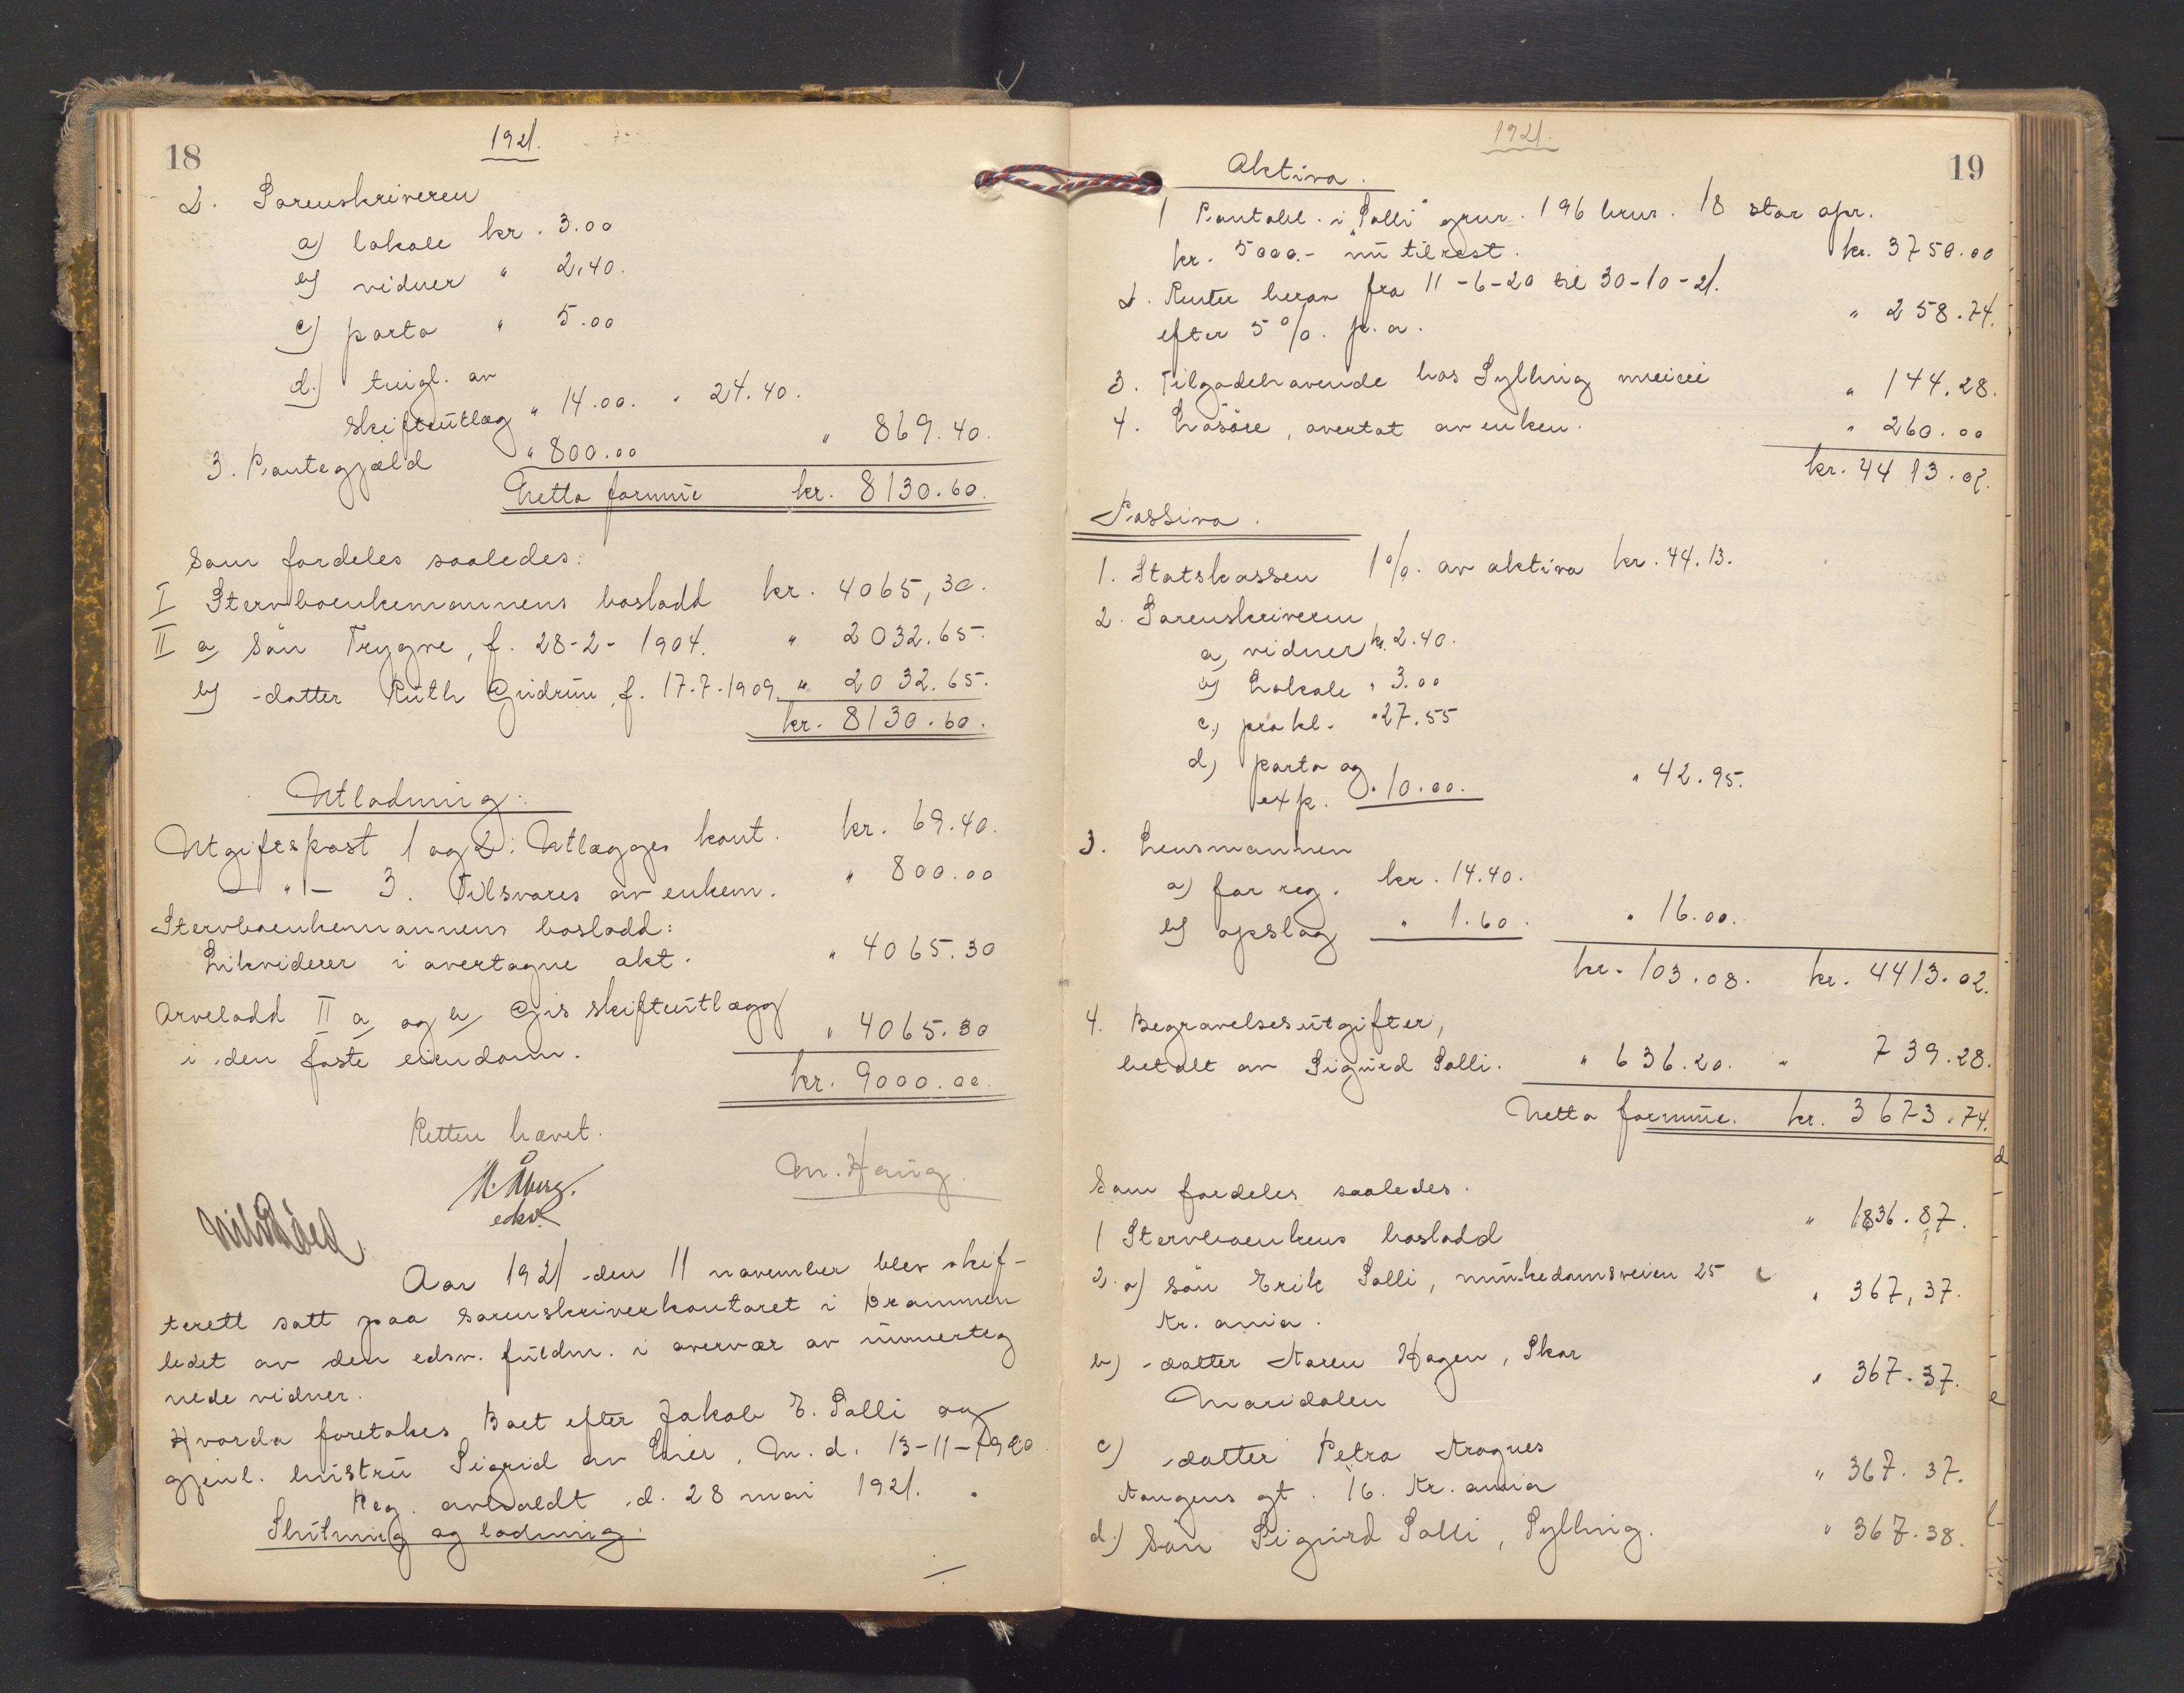 18
1921.
2. Sorenskriveren
a) lokale kr. 3.00
b) vidner " 2.40.
c) porto " 5.00
d.) tingl. av
skifteutlæg " 14.00. " 24.40.
" 869.40.
3. Pantegjæld " 800.00
Netto formue kr. 8130.60.
Som fordeles saaledes:
I Stervboenkemannens boslodd kr. 4065,30.
II a) Sön Trygve, f. 28-2-1904. " 2032.65.
b) datter Ruth Gudrun, f. 17.7.1909. " 2032.65.
kr. 8130.60.
Utlodning:
Utgiftspost 1 og 2: Utlægges kont. kr. 69.40.
— " — 3. Tilsvares av enkem. " 800.00
Stervboenkemannens boslodd:
Likviderer i overtagne akt. " 4065.30
Arvelodd II a) og b) Gis skifteutlegg
i den faste eiendom. " 4065.30
kr. 9000.00.
Retten hævet.
M. Haug.
edsv.
Aar 1921 den 11 november blev skif-
terett satt paa sorenskriverkontoret i Drammen
ledet av den edsv. fuldm. i overvær av underteg
nede vidner.
Hvorda foretokes Boet efter Jakob E. Solli og
gjenl. hustru Sigrid av Lier, M. d. 13-11-1920.
Reg. avholdt d. 28 mai 1921.
Slutning og lodning:
19
1921.
Aktiva.
1 Pantobl. i "Solli" grnr. 196 brnr. 18 stor opr.
kr. 5000.- nu tilrest. kr. 3750.00
2. Renter herav fra 11-6-20 til 30-10-21.
efter 5%. p.a. " 258.74.
3. Tilgodehavende hos Sylling meieri " 144.28.
4. Lösöre, overtat av enken. " 260.00
kr. 4413.02.
Passiva.
1. Statskassen 1%. av aktiva kr. 44.13.
2. Sorenskriveren
a) vidner kr. 2.40.
b) Lokale " 3.00
c) prokl. " 27.55
d) porto og
exp. " 10.00. " 42.95.
3. Lensmannen
a) for reg. kr. 14.40.
b) opslag " 1.60. " 16.00.
kr. 103.08. kr. 4413.02.
4. Begravelsesutgifter,
betalt av Sigurd Solli. " 636.20. " 739.28.
Netto formue. kr. 3673.74.
Som fordeles saaledes.
1 Stervboenkens boslodd " 1836.87.
2. a) Sön Erik Solli, munkedamsveien 25
Kr. ania. " 367,37.
b) datter Karen Hagen, Skar
Maridalen " 367.37.
c) datter Petra Kragnes
Kongens gt. 16. Kr. ania " 367.37.
d.) Sön Sigurd Solli, Sylling. " 367.38.